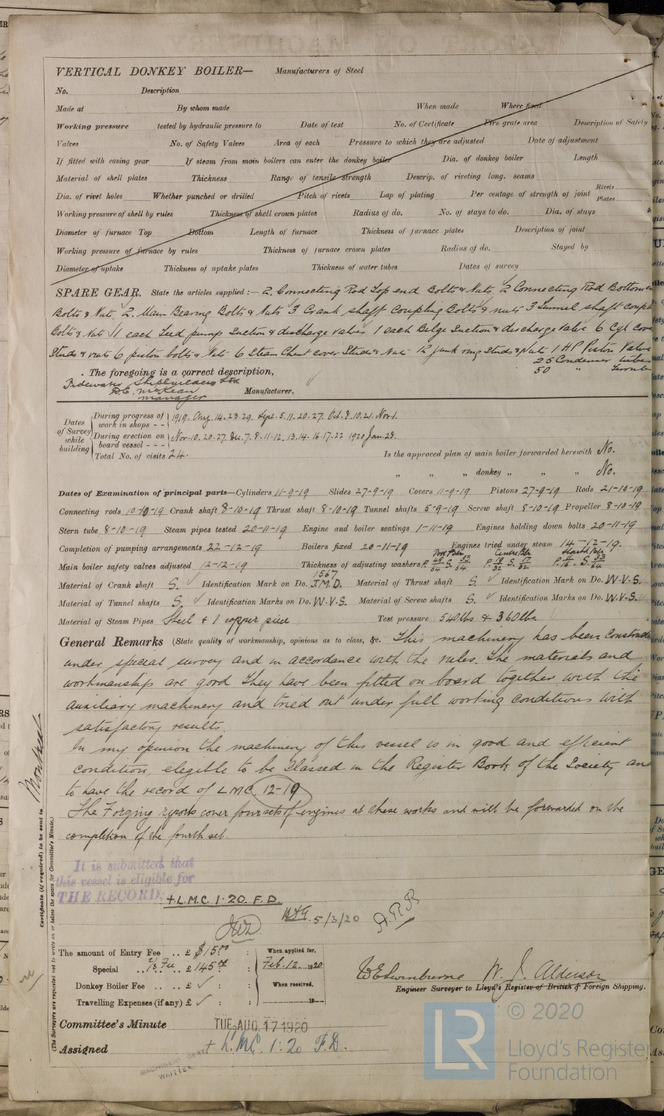 VERTICAL DONKEY BOILER— Manufacturers of Steel
No. Description
Made at By whom made When made Where fixed
Working pressure tested by hydraulic pressure to Date of test No. of Certificate Fire grate area Description of Safety
Valves No. of Safety Valves Area of each Pressure to which they are adjusted Date of adjustment
If fitted with easing gear If steam from main boilers can enter the donkey boiler Dia. of donkey boiler Length
Material of shell plates Thickness Range of tensile strength Descrip. of riveting long. seams
Dia. of rivet holes Whether punched or drilled Pitch of rivets Lap of plating Per centage of strength of joint Rivets Plates
Working pressure of shell by rules Thickness of shell crown plates Radius of do. No. of stays to do. Dia. of stays
Diameter of furnace Top Bottom Length of furnace Thickness of furnace plates Description of joint
Working pressure of furnace by rules Thickness of furnace crown plates Radius of do. Stayed by
Diameter of uptake Thickness of uptake plates Thickness of water tubes Dates of survey
SPARE GEAR. State the articles supplied:— 2 Connecting Rod Top end Bolts & Nuts, 2 Connecting Rod Bottom
Bolts & Nuts, 2 Main Bearing Bolts & Nuts 3 Crank shaft Coupling Bolts & nuts 3 Tunnel shaft
Bolts & Nuts 1 each feed pump suction & discharge valve 1 each Bilge Suction & discharge valve 6 Cyl
Studs & nuts 6 piston bolts & Nuts 6 Steam Chest cover Studs & Nuts 12 junk ring Studs & Nuts 1 HP Piston Valve
25 Condenser tubes
50 "
The foregoing is a correct description,
Tidewater Shipbuilders Ltd
manager Manufacturer.
Dates of Survey while building
During progress of work in shops - - 1919. Aug. 14. 23. 29. Sept. 5. 11. 20. 27. Oct. 8. 10. 21. Nov. 1.
During erection on board vessel - - - Nov. 10. 20. 27. Dec. 7. 8. 11. 12. 13. 14. 16. 17. 22 1920 Jan. 23.
Total No. of visits 24. Is the approved plan of main boiler forwarded herewith No.
" " " donkey " " " No.
Dates of Examination of principal parts—Cylinders 11-9-19 Slides 27-9-19 Covers 11-9-19 Pistons 27-9-19 Rods 21-10-19
Connecting rods 10-10-19 Crank shaft 8-10-19 Thrust shaft 8-10-19 Tunnel shafts 5-9-19 Screw shaft 8-10-19 Propeller 8-10-19
Stern tube 8-10-19 Steam pipes tested 20-11-19 Engine and boiler seatings 1-11-19 Engines holding down bolts 20-11-19
Completion of pumping arrangements 22-12-19 Boilers fixed 20-11-19 Engines tried under steam 14-12-19.
Main boiler safety valves adjusted 12-12-19 Thickness of adjusting washers
Material of Crank shaft S. Identification Mark on Do. 1567 J.M.D. Material of Thrust shaft S. Identification Mark on Do. W.V.S.
Material of Tunnel shafts S. Identification Marks on Do. W.V.S. Material of Screw shafts S. Identification Marks on Do. W.V.S.
Material of Steam Pipes Steel & 1 copper piece Test pressure 540lbs & 360lbs
General Remarks (State quality of workmanship, opinions as to class, &c. This machinery has been
under special survey and in accordance with the rules. The materials and
workmanship are good They have been fitted on board together with the
auxiliary machinery and tried out under full working conditions with
satisfactory results.
In my opinion the machinery of this vessel is in good and efficient
condition, eligible to be classed in the Register Book of the Society and
to have the record of LMC. 12-19
The Forging reports cover four sets of engines at these works and will be forwarded on the
completion of the fourth set.
It is submitted that
this vessel is eligible for
THE RECORD. + L.M.C. 1·20. F.D.
5/3/20
The amount of Entry Fee .. £ $15.00 When applied for,
Special .. £ 145.00 Feb. 12. 1920
Donkey Boiler Fee .. £ When received,
Travelling Expenses (if any) £
W. J. Alderson
Engineer Surveyor to Lloyd's Register of British & Foreign Shipping.
Committee's Minute TUE. AUG. 17 1920
Assigned + L.M.C. 1·20 F.D.
WRITTEN
Certificate (if required) to be sent to Montreal
(The Surveyors are requested not to write on or below the space for Committee's Minute.)
LR
© 2020
Lloyd's Register
Foundation